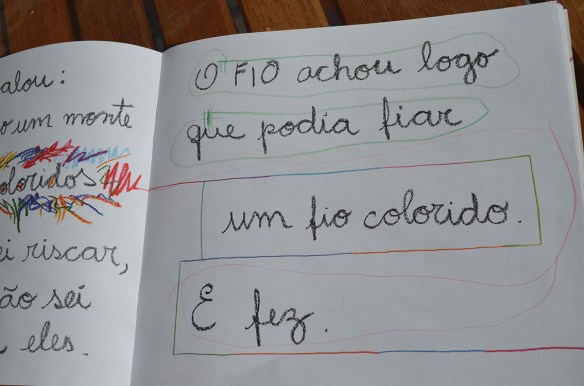 alou:
um monte
coloridos
ei riscar,
ão sei
eles.
O FIO achou logo
que podia fiar
um fio colorido.
E fez.